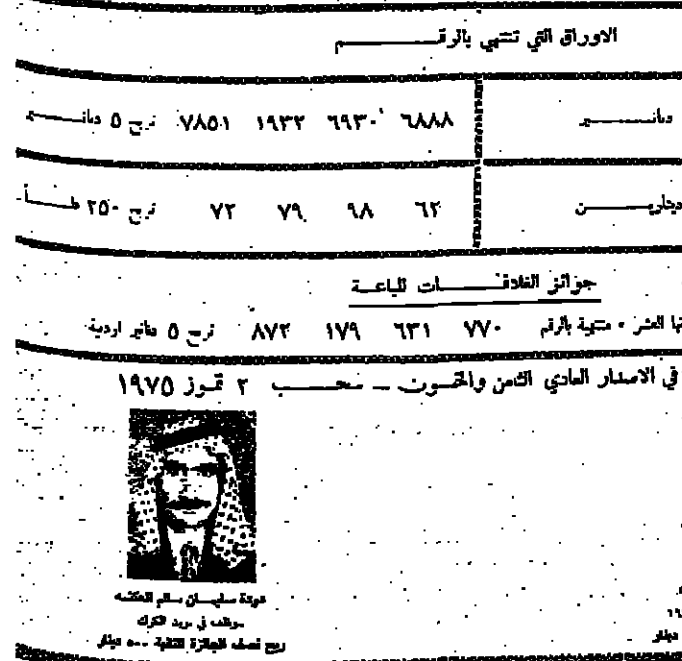 الاوراق التي تنتهي بالرقم
دنانير ٦٨٨٨ ٦٩٣٠ ١٩٣٢ ٧٨٥١ تربح ٥ دنانير
دينارين ٦٢ ٩٨ ٧٩ ٧٢ تربح ٢٥٠ فلساً
جوائز الغلافات للباعة
العشر • منتهية بالرقم ٧٧٠ ٦٣١ ١٧٩ ٨٧٢ تربح ٥ دنانير اردنية
في الاصدار العادي الثامن والخمسون ــ سحب ٢ تموز ١٩٧٥
عودة سليمان سالم
موظف في بريد الكرك
ربح نصف الجائزة الثانية ٥٠٠ دينار
دينار